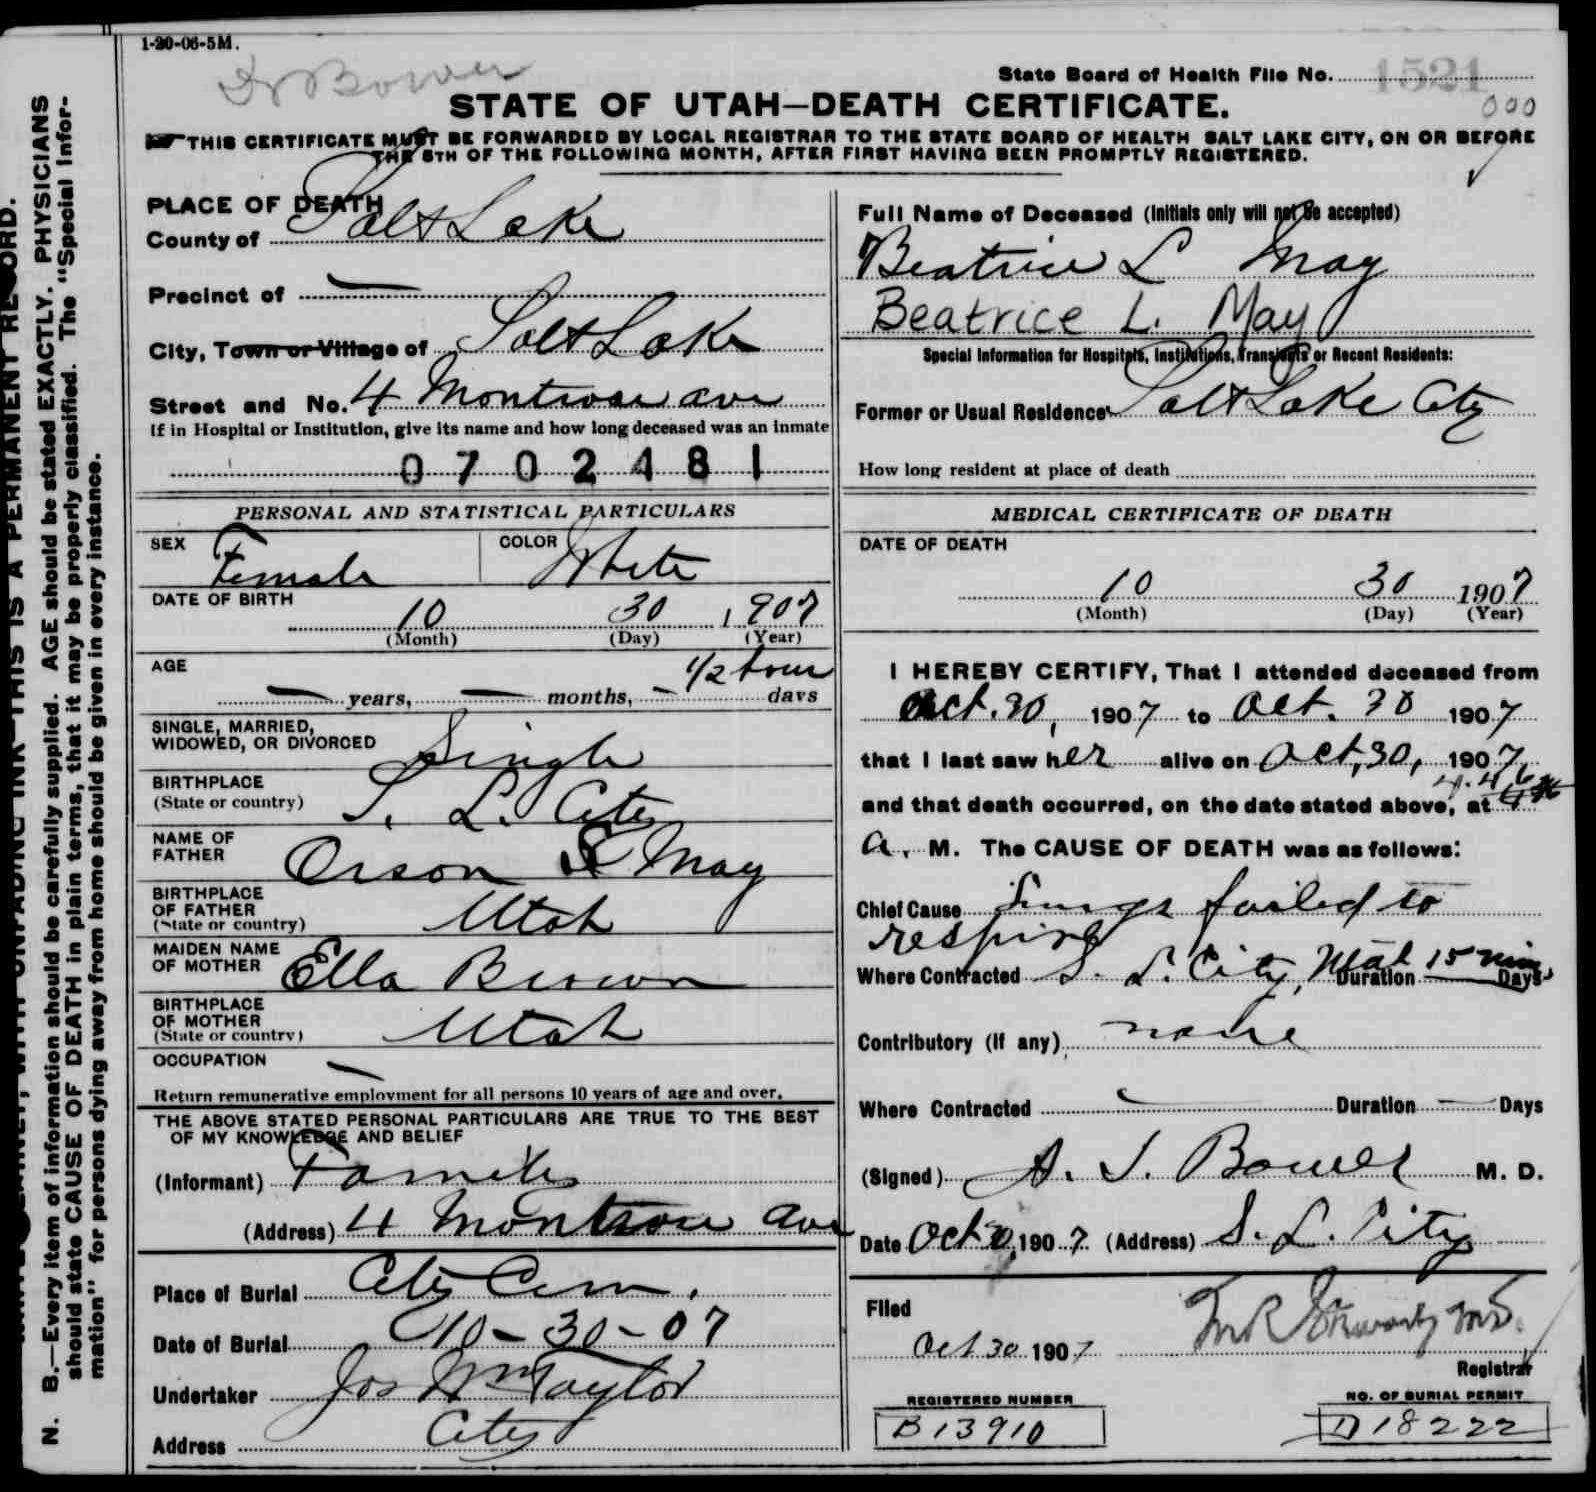 1-20-06-5M.
Dr Bower
State Board of Health File No. 1521
000
STATE OF UTAH—DEATH CERTIFICATE.
THIS CERTIFICATE MUST BE FORWARDED BY LOCAL REGISTRAR TO THE STATE BOARD OF HEALTH SALT LAKE CITY, ON OR BEFORE
THE 5TH OF THE FOLLOWING MONTH, AFTER FIRST HAVING BEEN PROMPTLY REGISTERED.
PLACE OF DEATH
County of Salt Lake
Precinct of —
City, Town or Village of Salt Lake
Street and No. 4 Montrose ave
If in Hospital or Institution, give its name and how long deceased was an inmate
0702481
PERSONAL AND STATISTICAL PARTICULARS
SEX Female COLOR White
DATE OF BIRTH
10 30 1907
(Month) (Day) (Year)
AGE 1/2 hour
— years, — months, — days
SINGLE, MARRIED,
WIDOWED, OR DIVORCED Single
BIRTHPLACE
(State or country) S. L. City
NAME OF
FATHER Orson May
BIRTHPLACE
OF FATHER
(State or country) Utah
MAIDEN NAME
OF MOTHER Ella Brown
BIRTHPLACE
OF MOTHER
(State or country) Utah
OCCUPATION —
Return remunerative employment for all persons 10 years of age and over.
THE ABOVE STATED PERSONAL PARTICULARS ARE TRUE TO THE BEST
OF MY KNOWLEDGE AND BELIEF
(Informant) Family
(Address) 4 Montrose ave
Place of Burial City Cem.
Date of Burial 10-30-07
Undertaker Jos Wm Taylor
Address City
Full Name of Deceased (Initials only will not be accepted)
Beatrice L May
Beatrice L. May
Special Information for Hospitals, Institutions, Transients or Recent Residents:
Former or Usual Residence Salt Lake City
How long resident at place of death
MEDICAL CERTIFICATE OF DEATH
DATE OF DEATH
10 30 1907
(Month) (Day) (Year)
I HEREBY CERTIFY, That I attended deceased from
Oct. 30, 1907 to Oct. 30 1907
that I last saw her alive on Oct, 30, 1907,
and that death occurred, on the date stated above, at
a. M. The CAUSE OF DEATH was as follows:
Chief Cause Lungs failed to
respire
Where Contracted S. L. City, Utah Duration 15 min Days
Contributory (if any) none
Where Contracted — Duration — Days
(Signed) A. J. Bower M. D.
Date Oct 30, 1907 (Address) S. L. City
Filed
Oct 30 1907
Registrar
REGISTERED NUMBER
B13910
NO. OF BURIAL PERMIT
D18222
N. B.—Every item of information should be carefully supplied. AGE should be stated EXACTLY. PHYSICIANS
should state CAUSE OF DEATH in plain terms, that it may be properly classified. The "Special Infor-
mation" for persons dying away from home should be given in every instance.